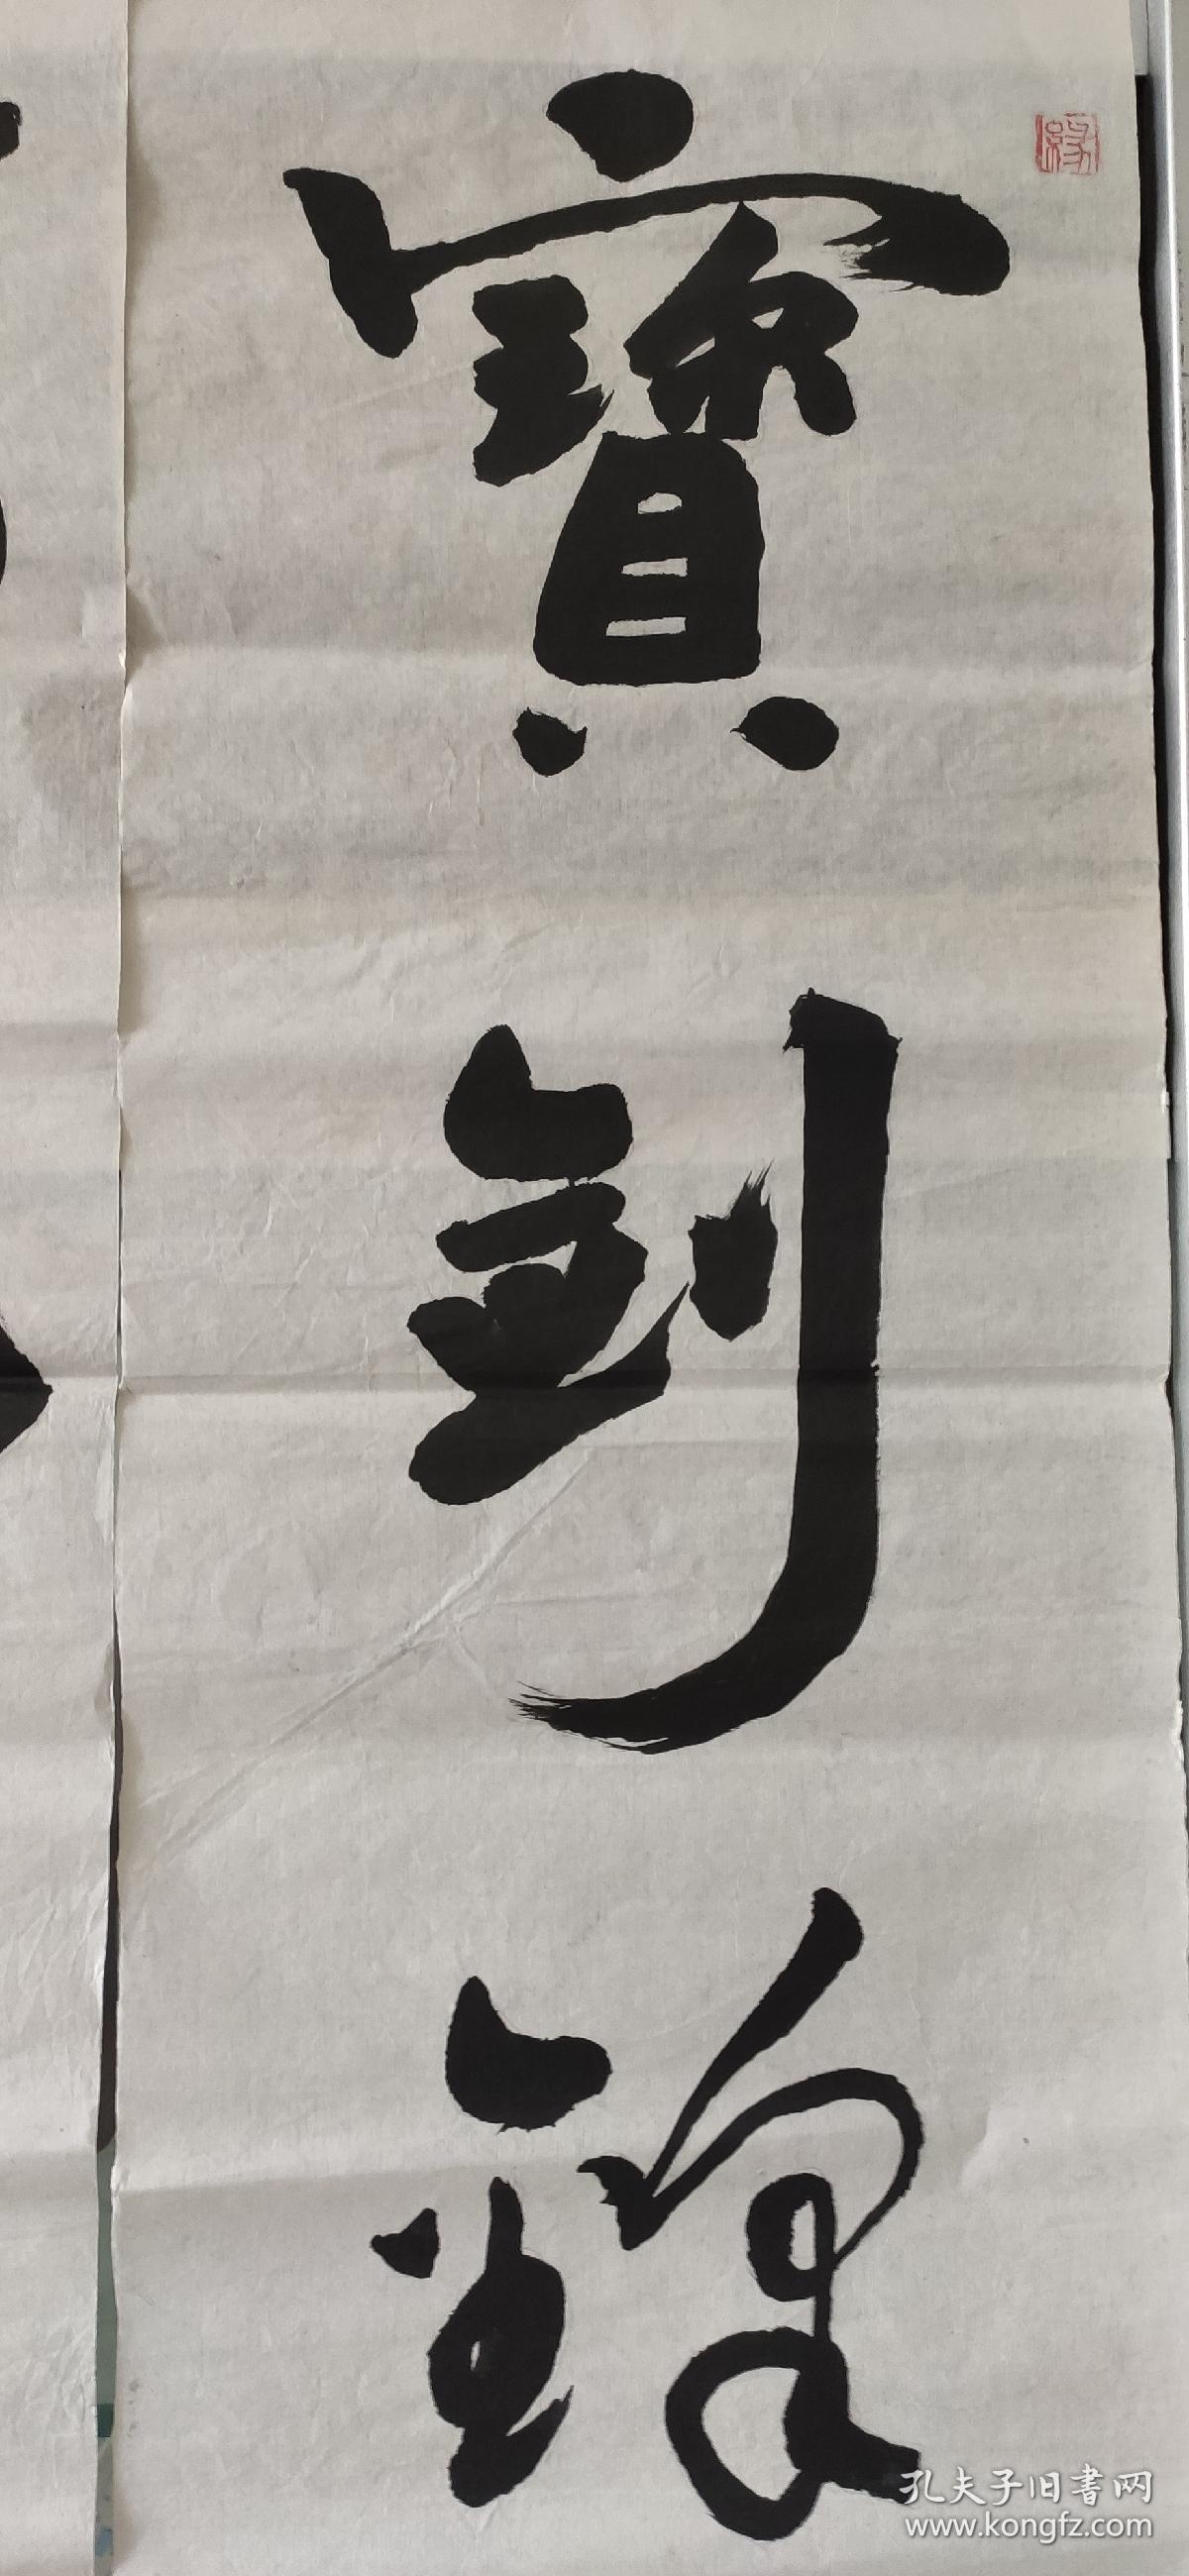 寶劍鋒
孔夫子旧書网
www.kongfz.com